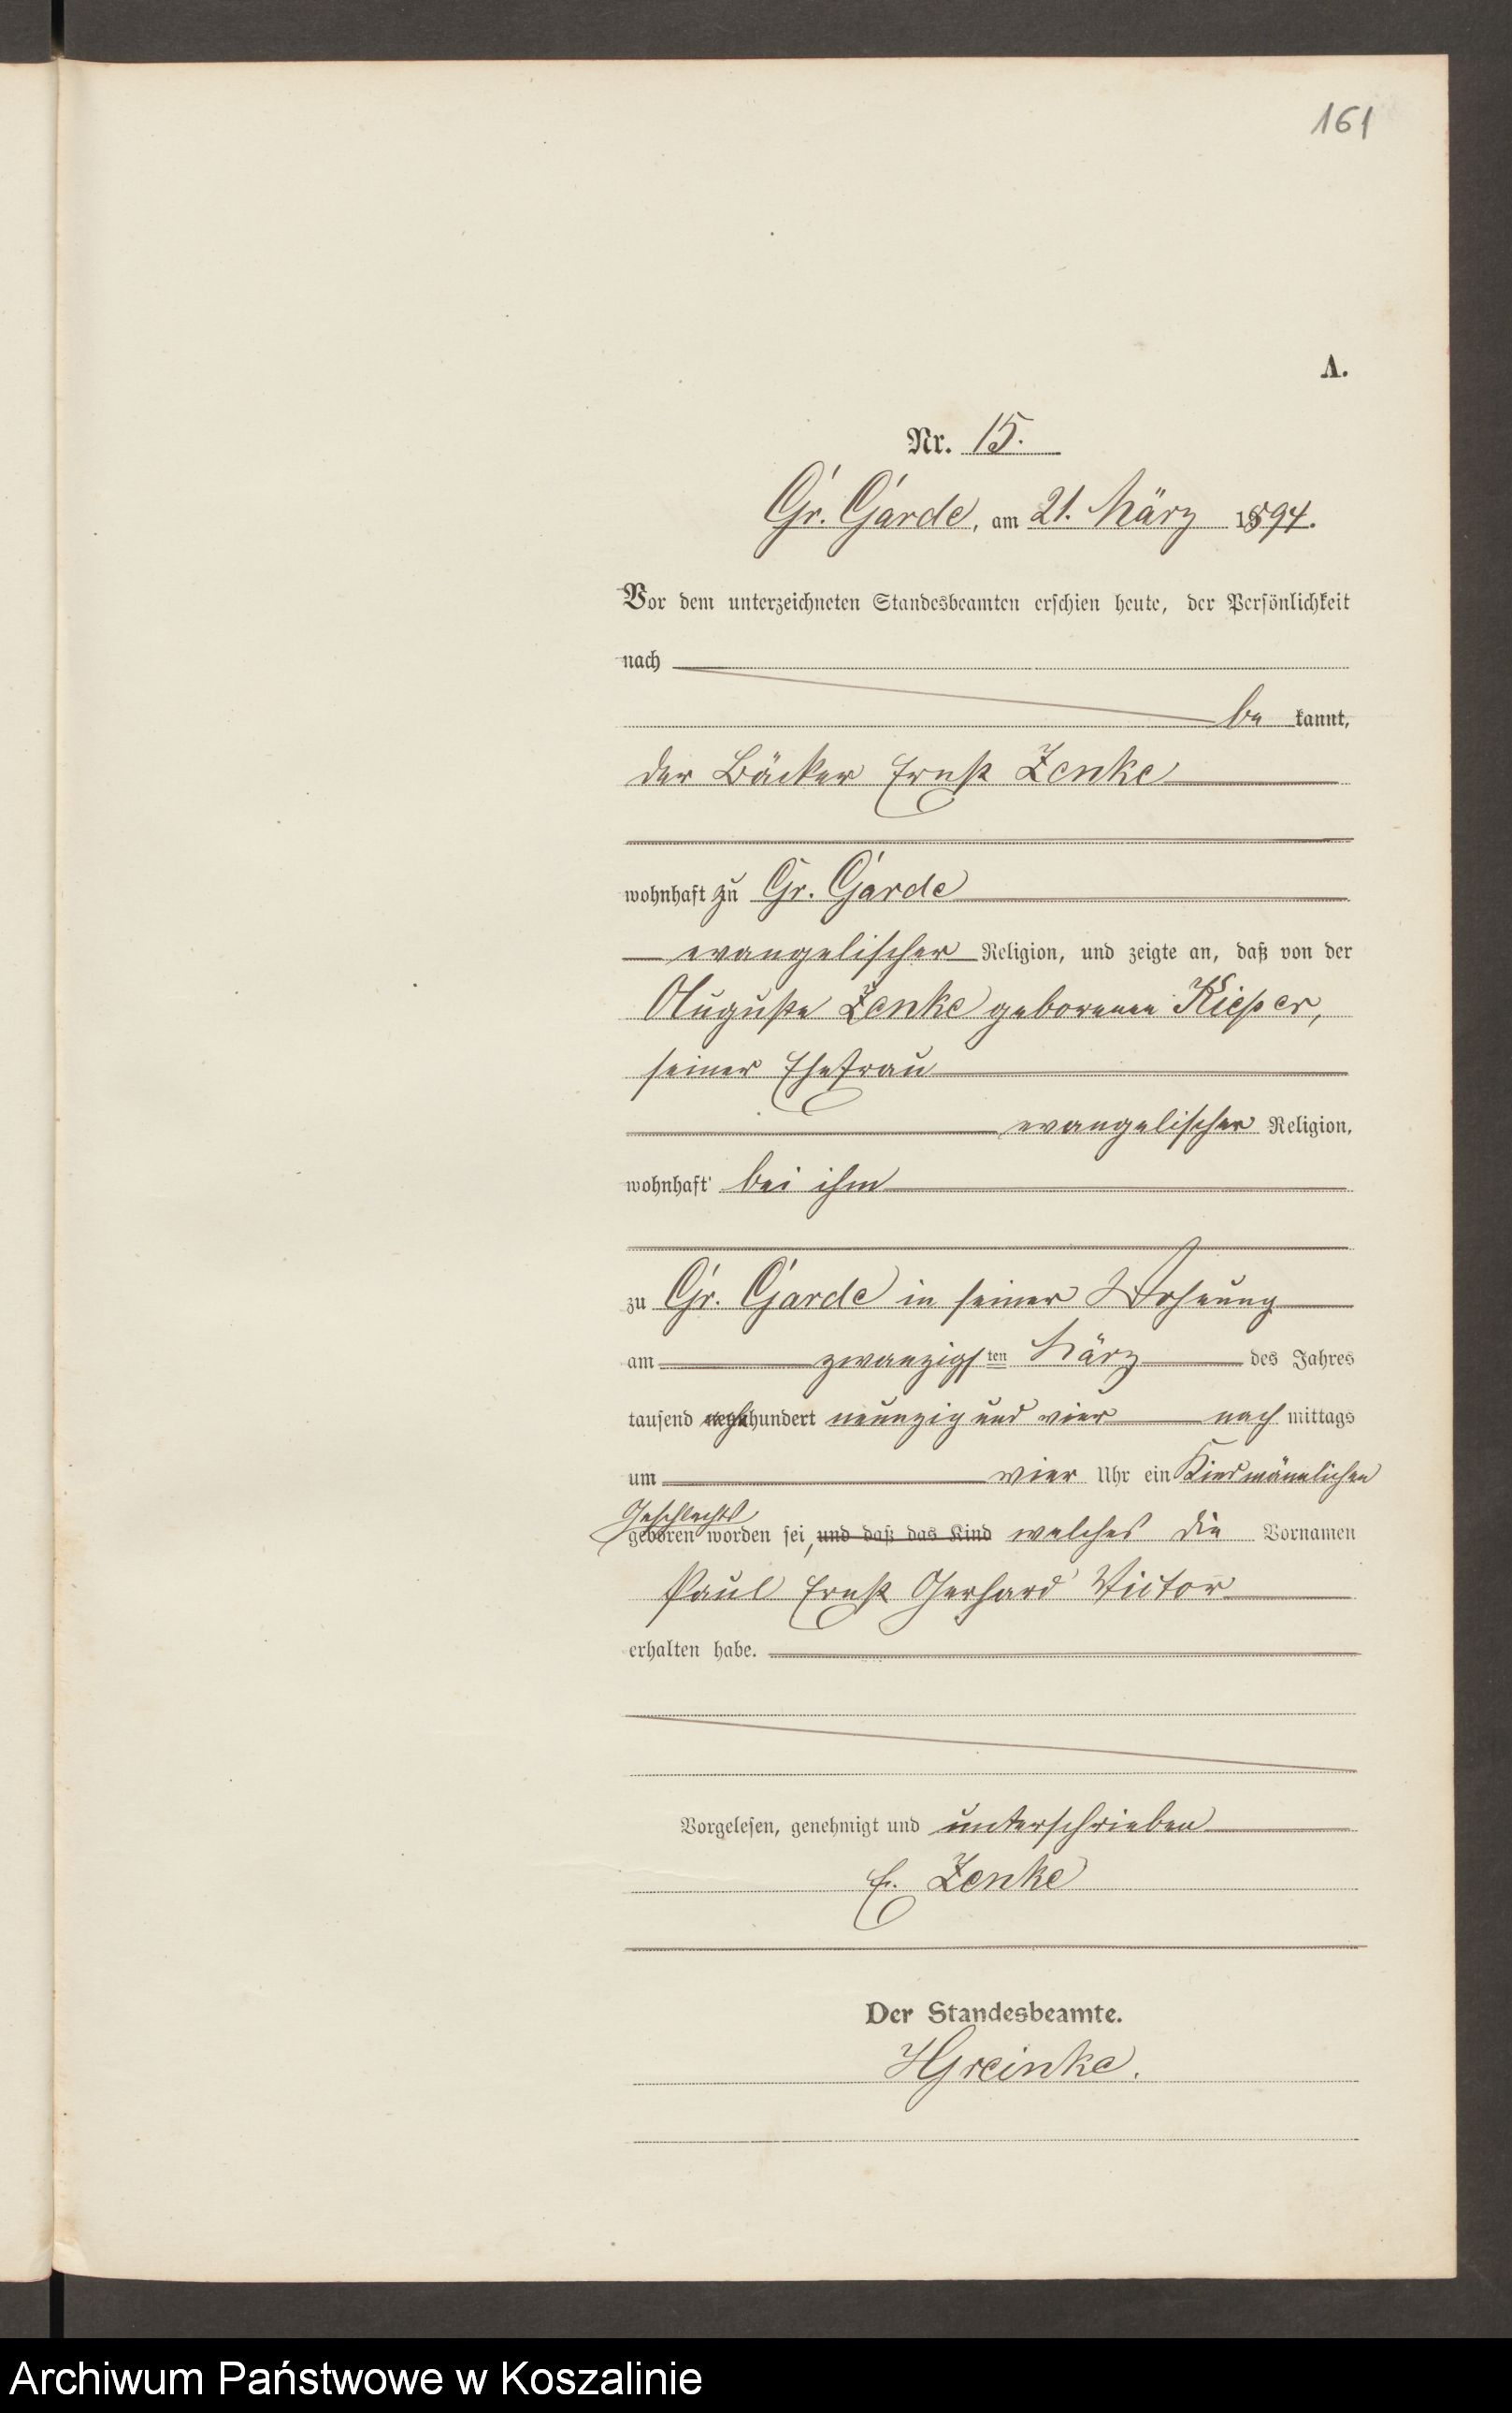 161
A.
Nr. 15.
Gr. Garde, am 21. März 1894.
Vor dem unterzeichneten Standesbeamten erschien heute, der Persönlichkeit
nach
be kannt,
der Bäcker Ernst Zenke
wohnhaft zu Gr. Garde
evangelischer Religion, und zeigte an, daß von der
Auguste Zenke geborenen Kieper,
seiner Ehefrau
evangelischer Religion,
wohnhaft bei ihm
zu Gr. Garde in seiner Wohnung
am zwanzigsten März des Jahres
tausend achthundert neunzig und vier nach mittags
um vier Uhr ein Kind männlichen
Geschlechts
geboren worden sei, und daß das Kind welches die Vornamen
Paul Ernst Gerhard Victor
erhalten habe.
Vorgelesen, genehmigt und unterschrieben
E. Zenke
Der Standesbeamte.
HGreinke.
Archiwum Państwowe w Koszalinie